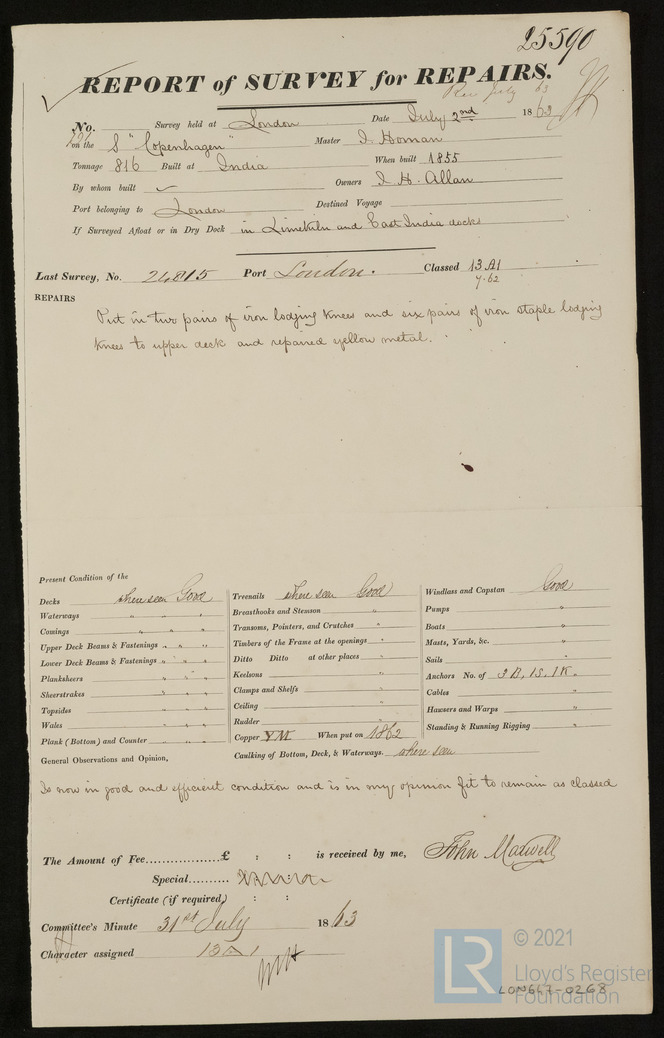 25590
REPORT of SURVEY for REPAIRS.
Rec July 63
No. Survey held at London Date July 2nd 1863
on the S "Copenhagen" Master I Homan
Tonnage 816 Built at India When built 1855
By whom built Owners I. H. Allan
Port belonging to London Destined Voyage
If Surveyed Afloat or in Dry Dock in Limekiln and East India docks
Last Survey, No. 24815 Port London. Classed 13 A1
7.62
REPAIRS
Put in two pairs of iron lodging knees and six pairs of iron staple lodging
knees to upper deck and repaired yellow metal.
Present Condition of the
Decks where seen Good
Waterways " " "
Comings " " "
Upper Deck Beams & Fastenings " " "
Lower Deck Beams & Fastenings " " "
Planksheers " " "
Sheerstrakes " " "
Topsides " " "
Wales " " "
Plank (Bottom) and Counter " " "
General Observations and Opinion,
Treenails where seen Good
Breasthooks and Stemson "
Transoms, Pointers, and Crutches "
Timbers of the Frame at the openings "
Ditto Ditto at other places "
Keelsons "
Clamps and Shelfs "
Ceiling "
Rudder "
Copper YM When put on 1862
Caulking of Bottom, Deck, & Waterways. where seen
Windlass and Capstan Good
Pumps "
Boats "
Masts, Yards, &c. "
Sails "
Anchors No. of 3 B, 1S, 1K "
Cables "
Hawsers and Warps "
Standing & Running Rigging "
Is now in good and efficient condition and is in my opinion fit to remain as classed
The Amount of Fee..................£ : : is received by me, John Maxwell
Special..........
Certificate (if required) : :
Committee's Minute 31st July 1863
Character assigned 13 A 1
LR
© 2021
Lloyd's Register
Foundation
LON647-0268